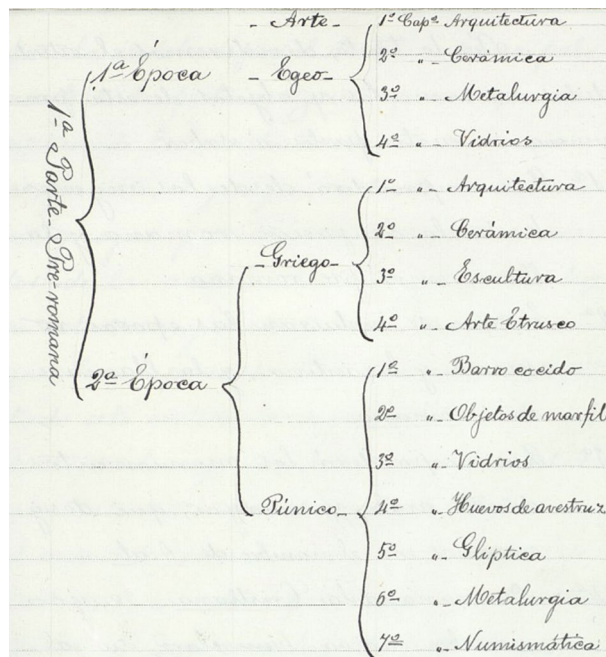 1ª Parte - Pre-romana
1ª Época
- Arte -
- Egeo -
1º Capº Arquitectura
2º „ - Cerámica
3º „ - Metalurgia
4º „ - Vidrios
2ª Época
- Griego -
1º „ - Arquitectura
2º „ - Cerámica
3º „ - Escultura
4º „ - Arte Etrusco
Púnico -
1º „ - Barro cocido
2º „ - Objetos de marfil
3º „ - Vidrios
4º „ - Huevos de avestruz
5º „ - Glíptica
6º „ - Metalurgia
7º „ - Numismática